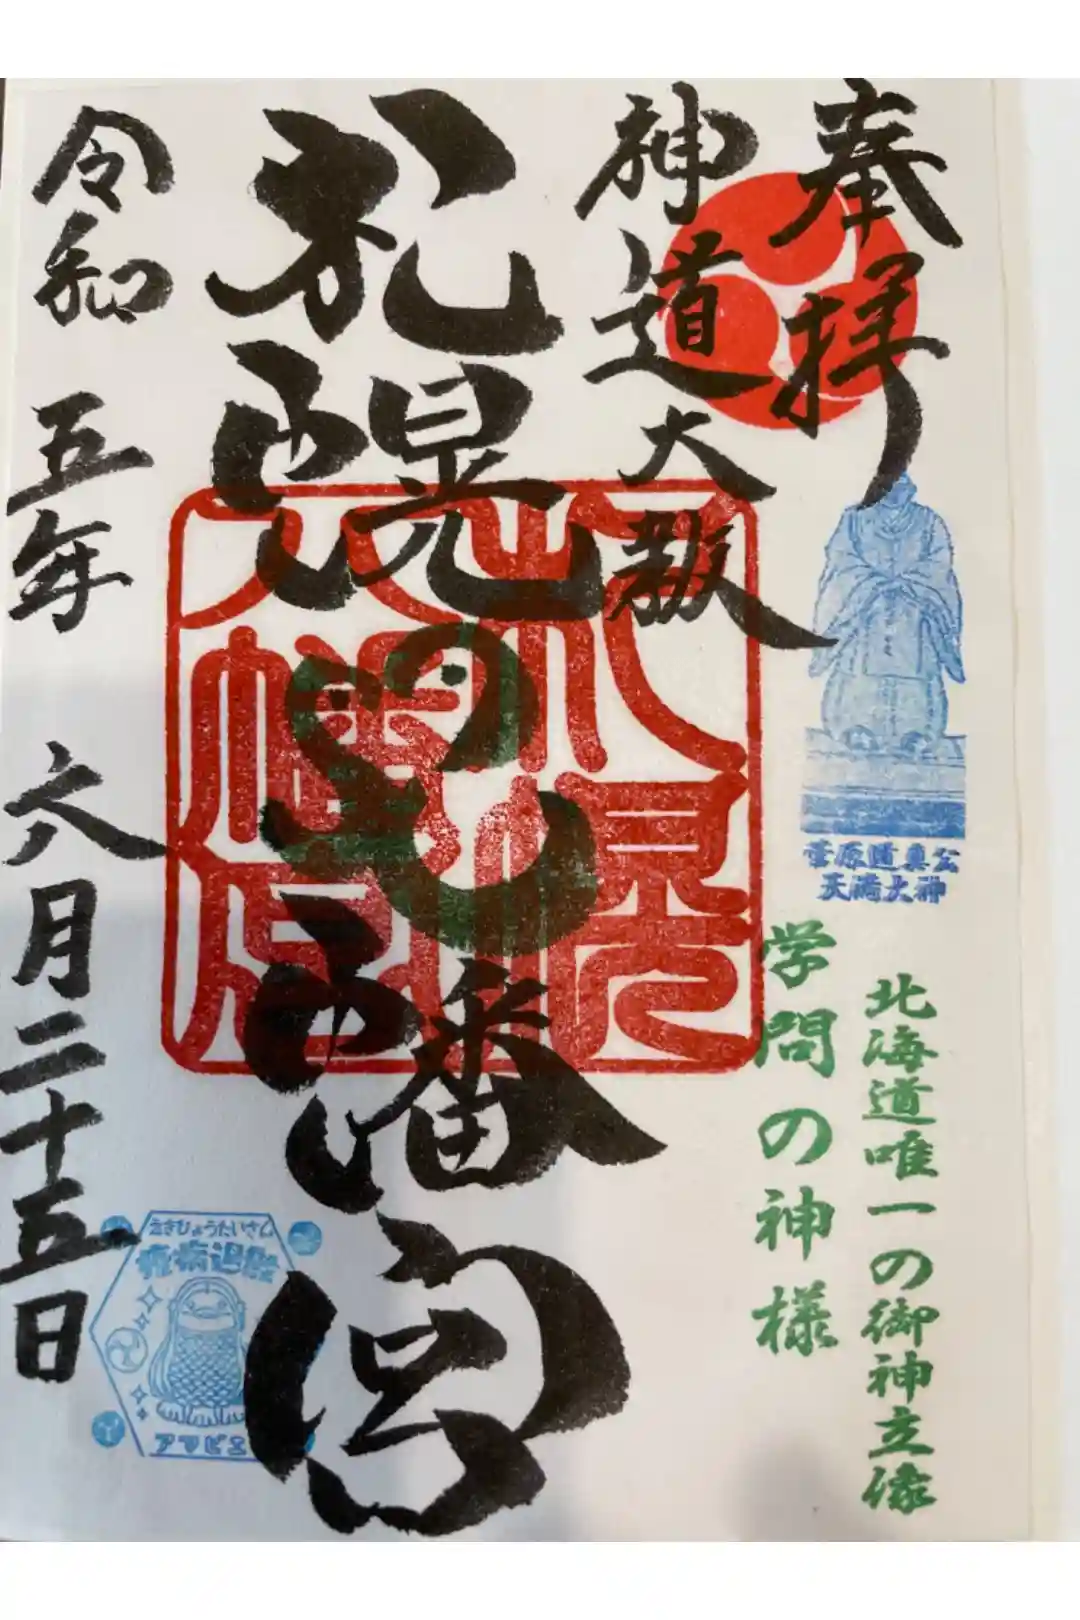 奉拝
神道大教
札幌八幡宮
令和五年六月二十五日
菅原道真公
天満大神
北海道唯一の御神立像
学問の神様
えきびょうたいさん
疫病退散
アマビエ
札幌
八幡宮